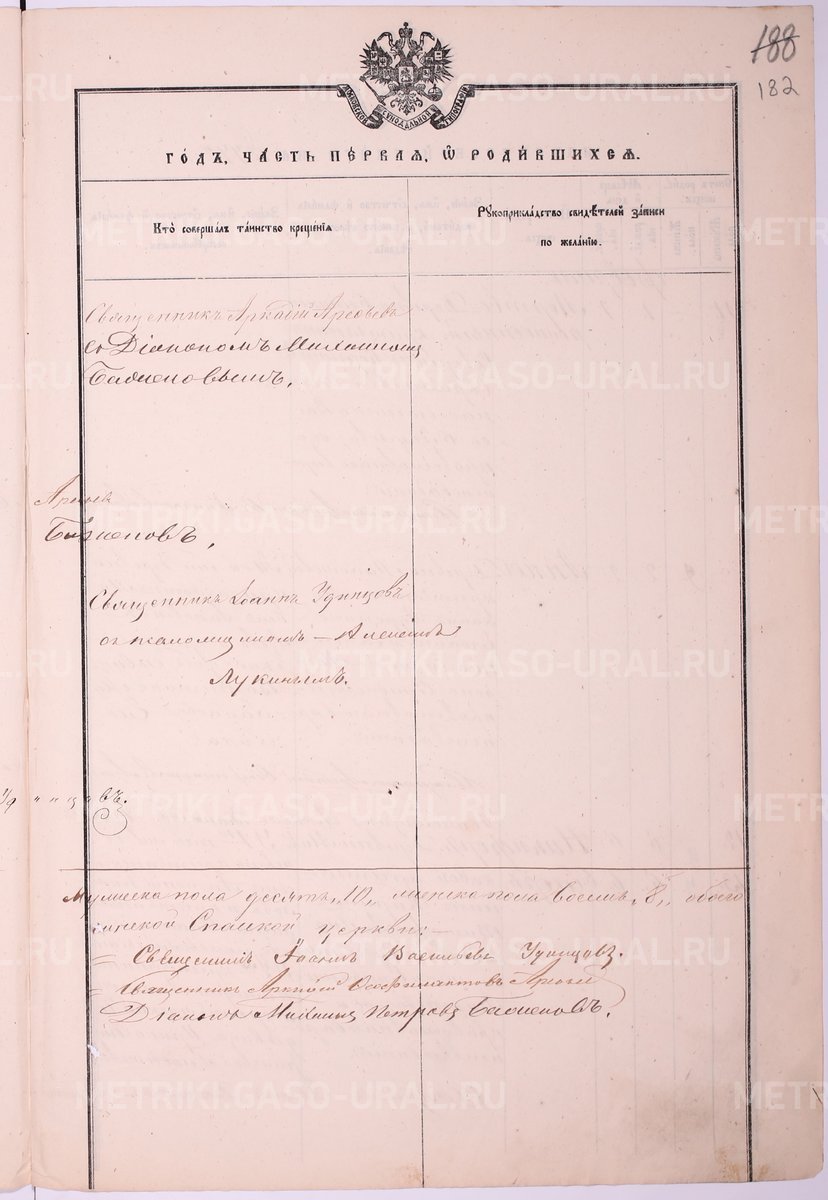 188
182
МОСКОВСКОЙ СѴНОДАЛЬНОЙ ТИПОГРАФІИ
ГО́ДЪ, ЧА́СТЬ ПЕ́РВАЯ, Ѡ РОДИ́ВШИХСЯ.
Кто̀ соверша́лъ та́инство креще́нія
Рꙋкоприкла́дство свидѣ́телей за́писи
по жела́нію.
Священникъ Аркадій Арефьевъ
съ Діакономъ Михаиломъ
Баженовымъ.
Арефьевъ
Баженовъ,
Священникъ Іоаннъ Удинцовъ
съ псаломщикомъ – Алексѣемъ
Лукинымъ.
Удинцовъ.
Мужеска пола десять „10„ женска пола восемь „8„ обоего
Спасской церкви:
Священникъ Іоаннъ Васильевъ Удинцовъ.
Священникъ Аркадій Феофилактовъ Арефьевъ
Діаконъ Михаилъ Петровъ Баженовъ.
METRIKI.GASO-URAL.RU